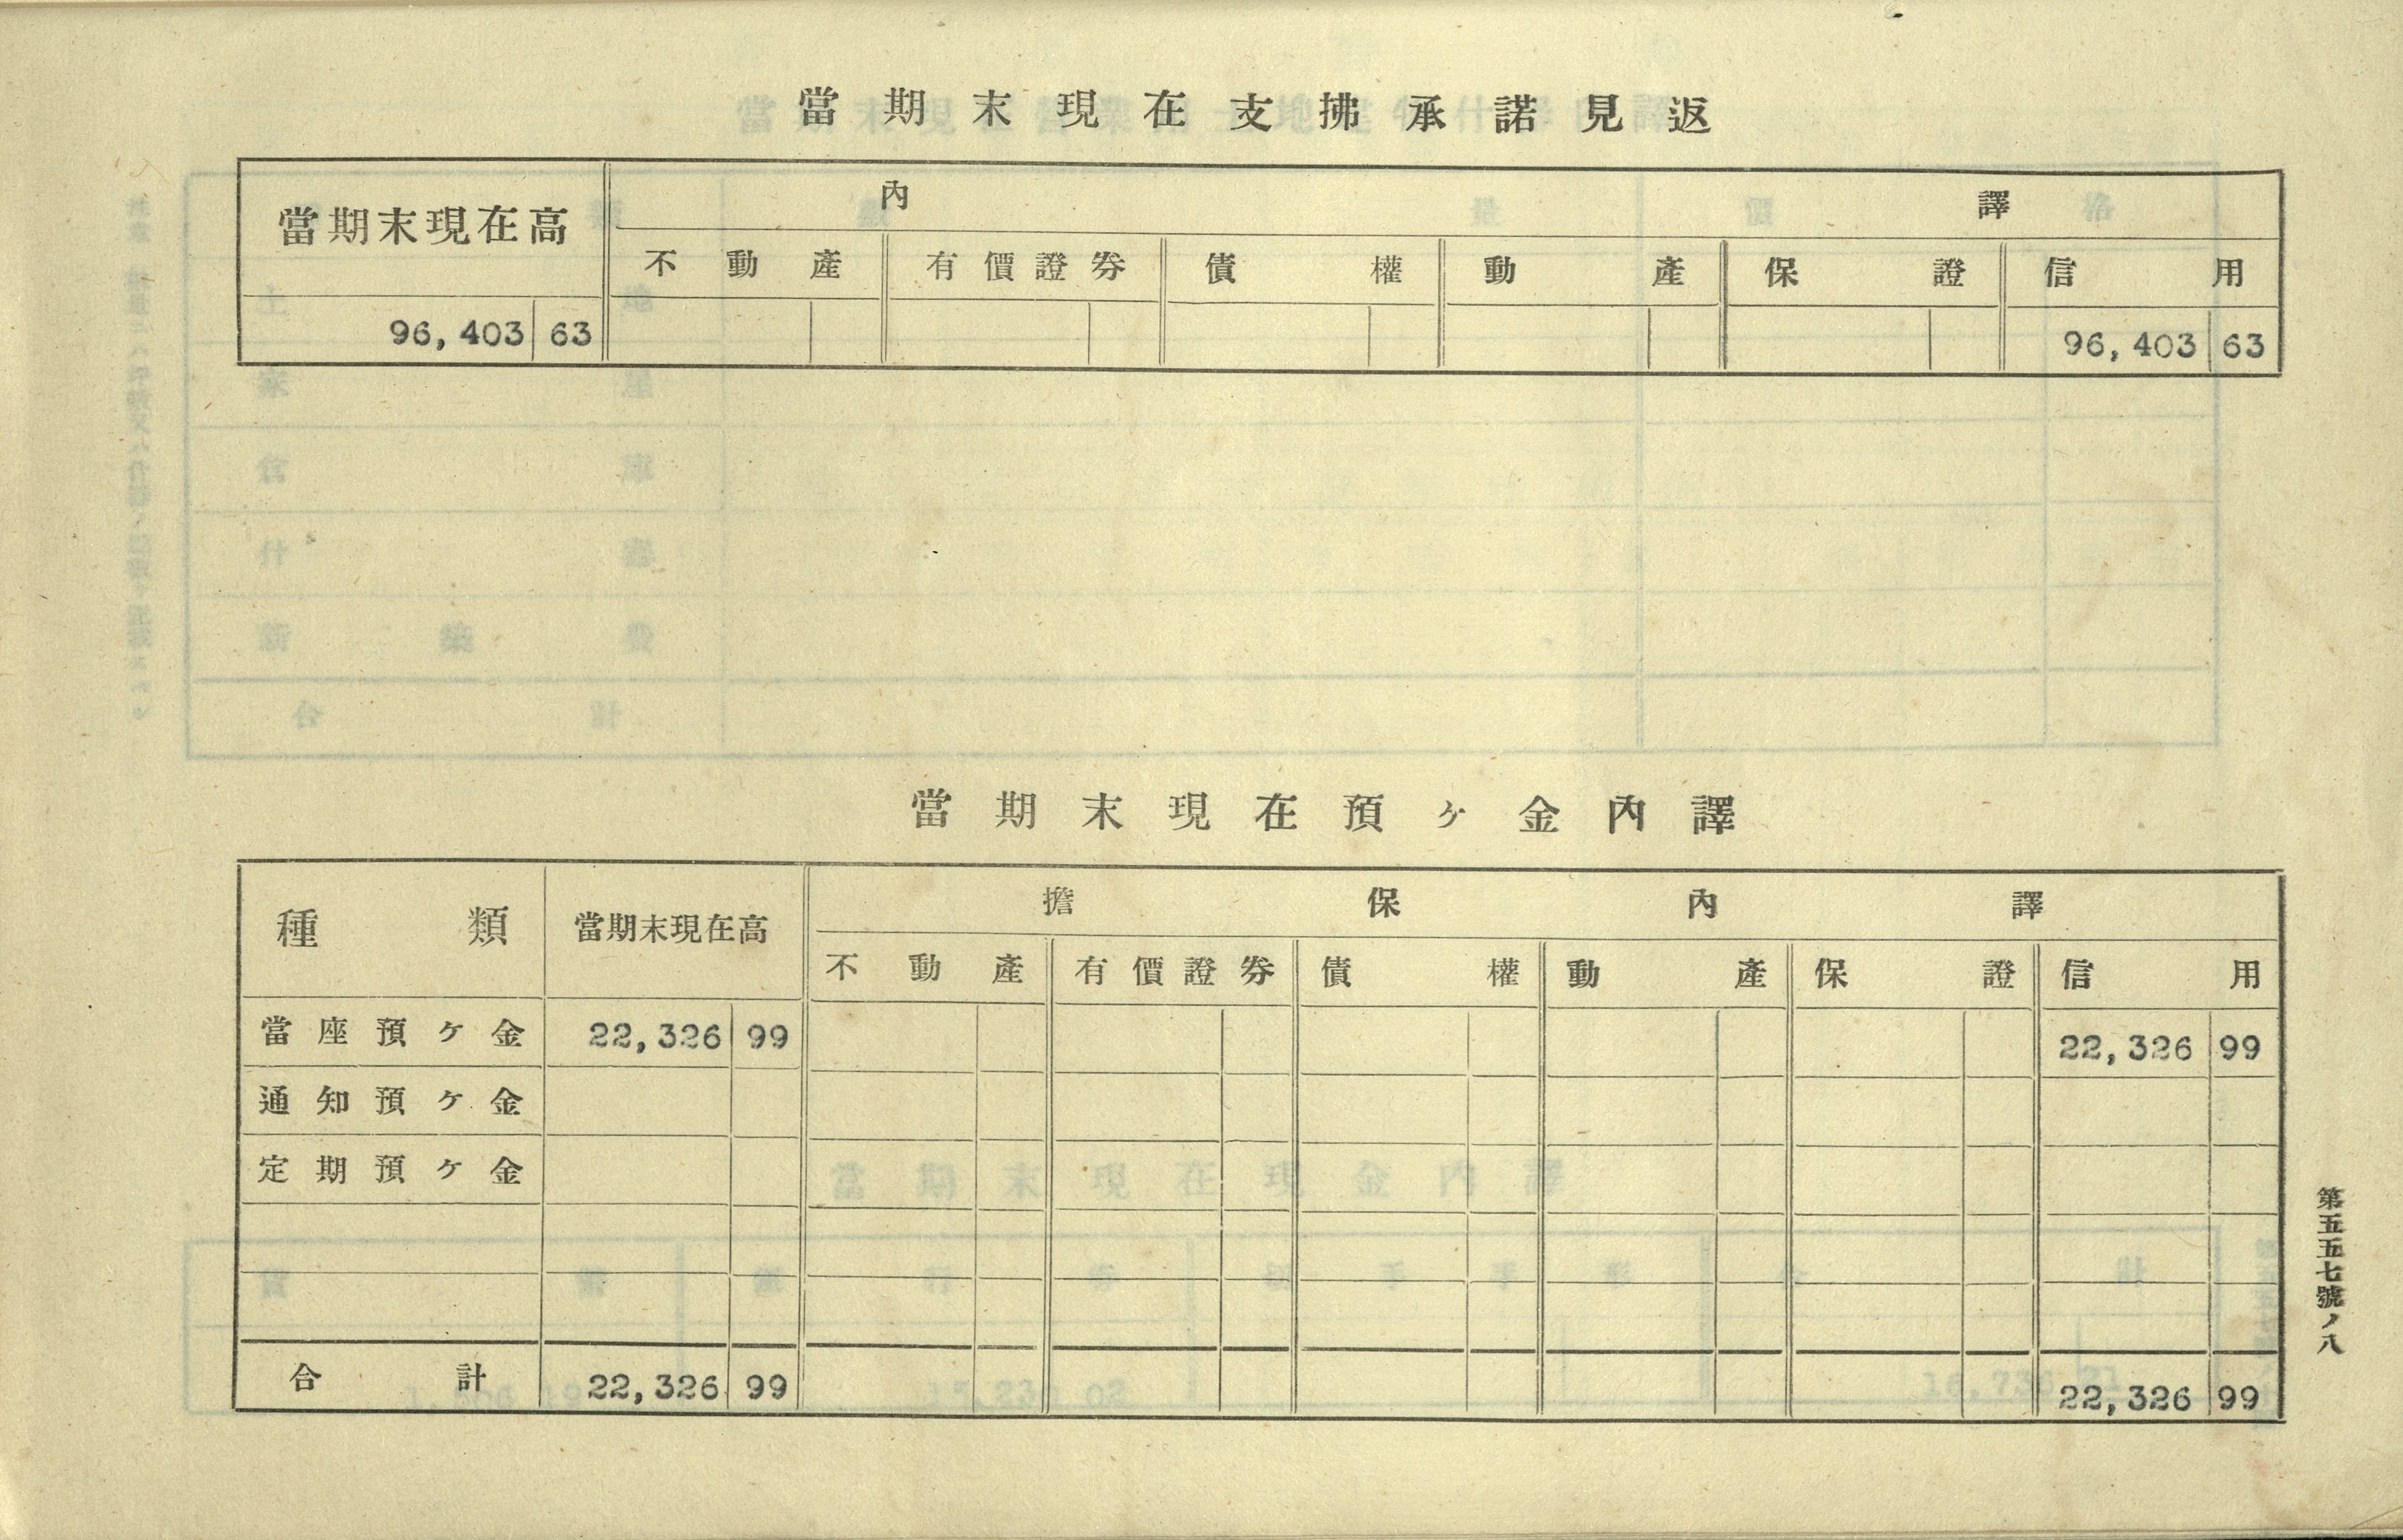 當期末現在支拂承諾見返
當期末現在高 內譯
不動產 有價證券 債權 動產 保證 信用
96,403 63 96,403 63
當期末現在預ヶ金內譯
種類 當期末現在高 擔保內譯
不動產 有價證券 債權 動產 保證 信用
當座預ケ金 22,326 99 22,326 99
通知預ケ金
定期預ケ金
合計 22,326 99 22,326 99
第五五七號ノ八